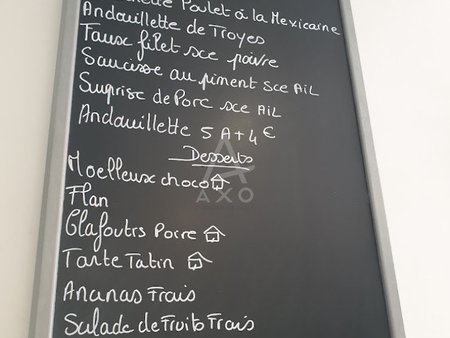 Poulet à la Mexicaine
Andouillette de Troyes
Faux filet sce poivre
Saucisse au piment sce AiL
Suprise de Porc sce AiL
Andouillette 5 A + 4 €
Desserts
Moelleux choco
Flan
Clafoutis Poire
Tarte Tatin
Ananas Frais
Salade de Fruits Frais
AXO